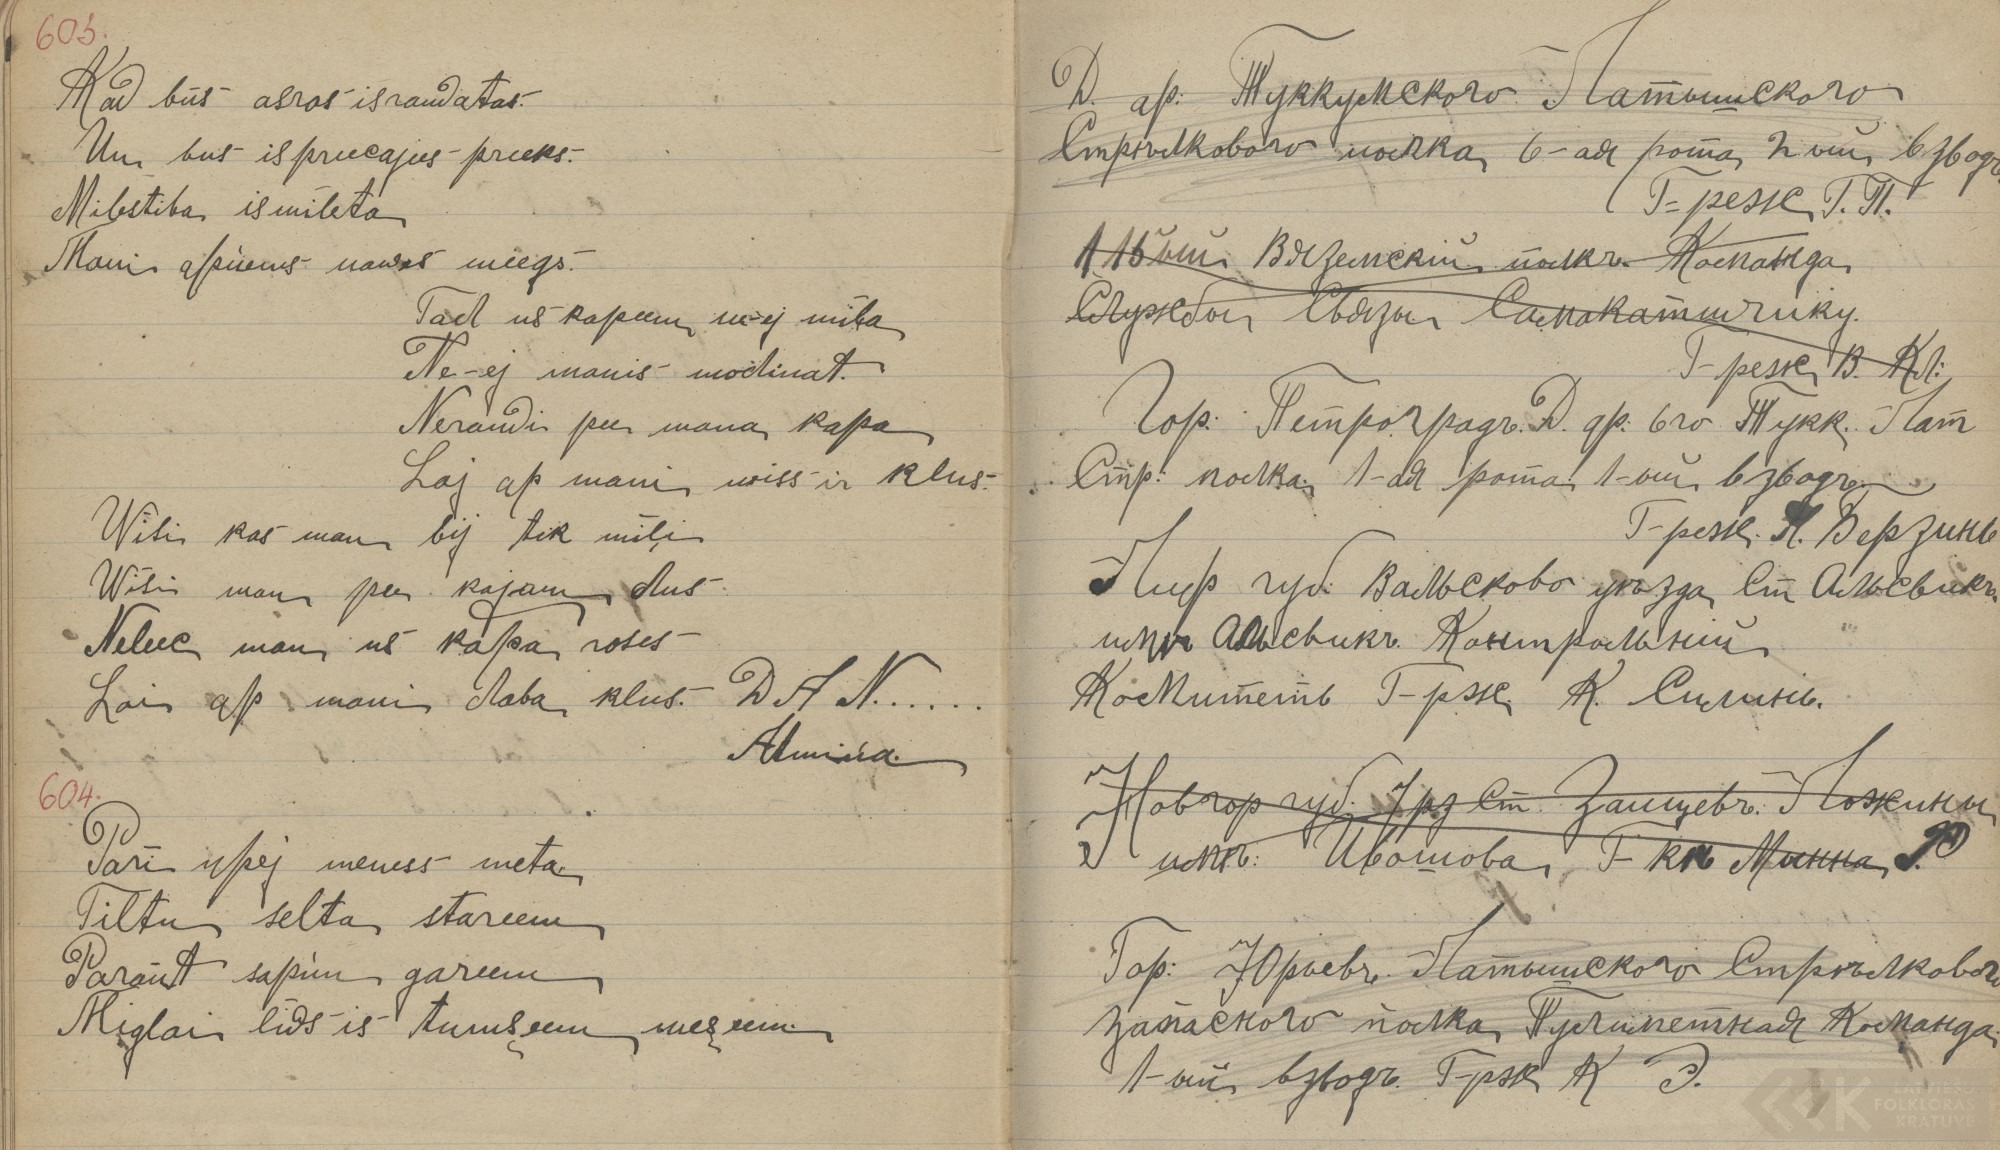 603.
Kad būs asras israudatas.
Un bus ispreecajees preeks.
Milestiba ismileta
Mani apņems nawes meegs.
Tad us kapeem ne-ej mila
Ne-ej manis modinat.
Neraudi pee mana kapa
Laj ap mani wiss ir klus.
Wisi kas man bij tik miļi
Wisi man pee kajam dus.
Neleec man us kapa roses
Lai ap mani daba klus. D A N......
Almiņa.
604.
Pari upej meness meta
Tiltu selta stareem
Paraut sapņu gareem
Miglai līds is tumšeem mešeem.
Д. ар: Туккумского Латышского
Стрѣлкового полка 6-ая рота 2 ый взводъ
Г-реж Г.П.
Вяземскій полкъ Команда
Службы Связы Самокатшчику.
Г-реж В. Кл:
Гор: Петроградъ. Д. ар: 6го Тукк. Лат
Стр: полка 1-ая рота 1-ый взводъ.
Г-реж. Берзинь
Лиф губ: Вальсково уѣзда Ст Альсвикъ.
имѣ Альсвикъ. Контрольний
Комитеть Г-рж К. Силинь.
Новгор губ: Ст Занцевъ. Ложины
имѣ: Ивошова Г-кѣ Минна Р
Гор: Юрьевъ. Латышского Стрѣлкового
запасного полка Пулиметная Команда.
1-ый взводъ. Г-рж К Э.
KRĀTUVE